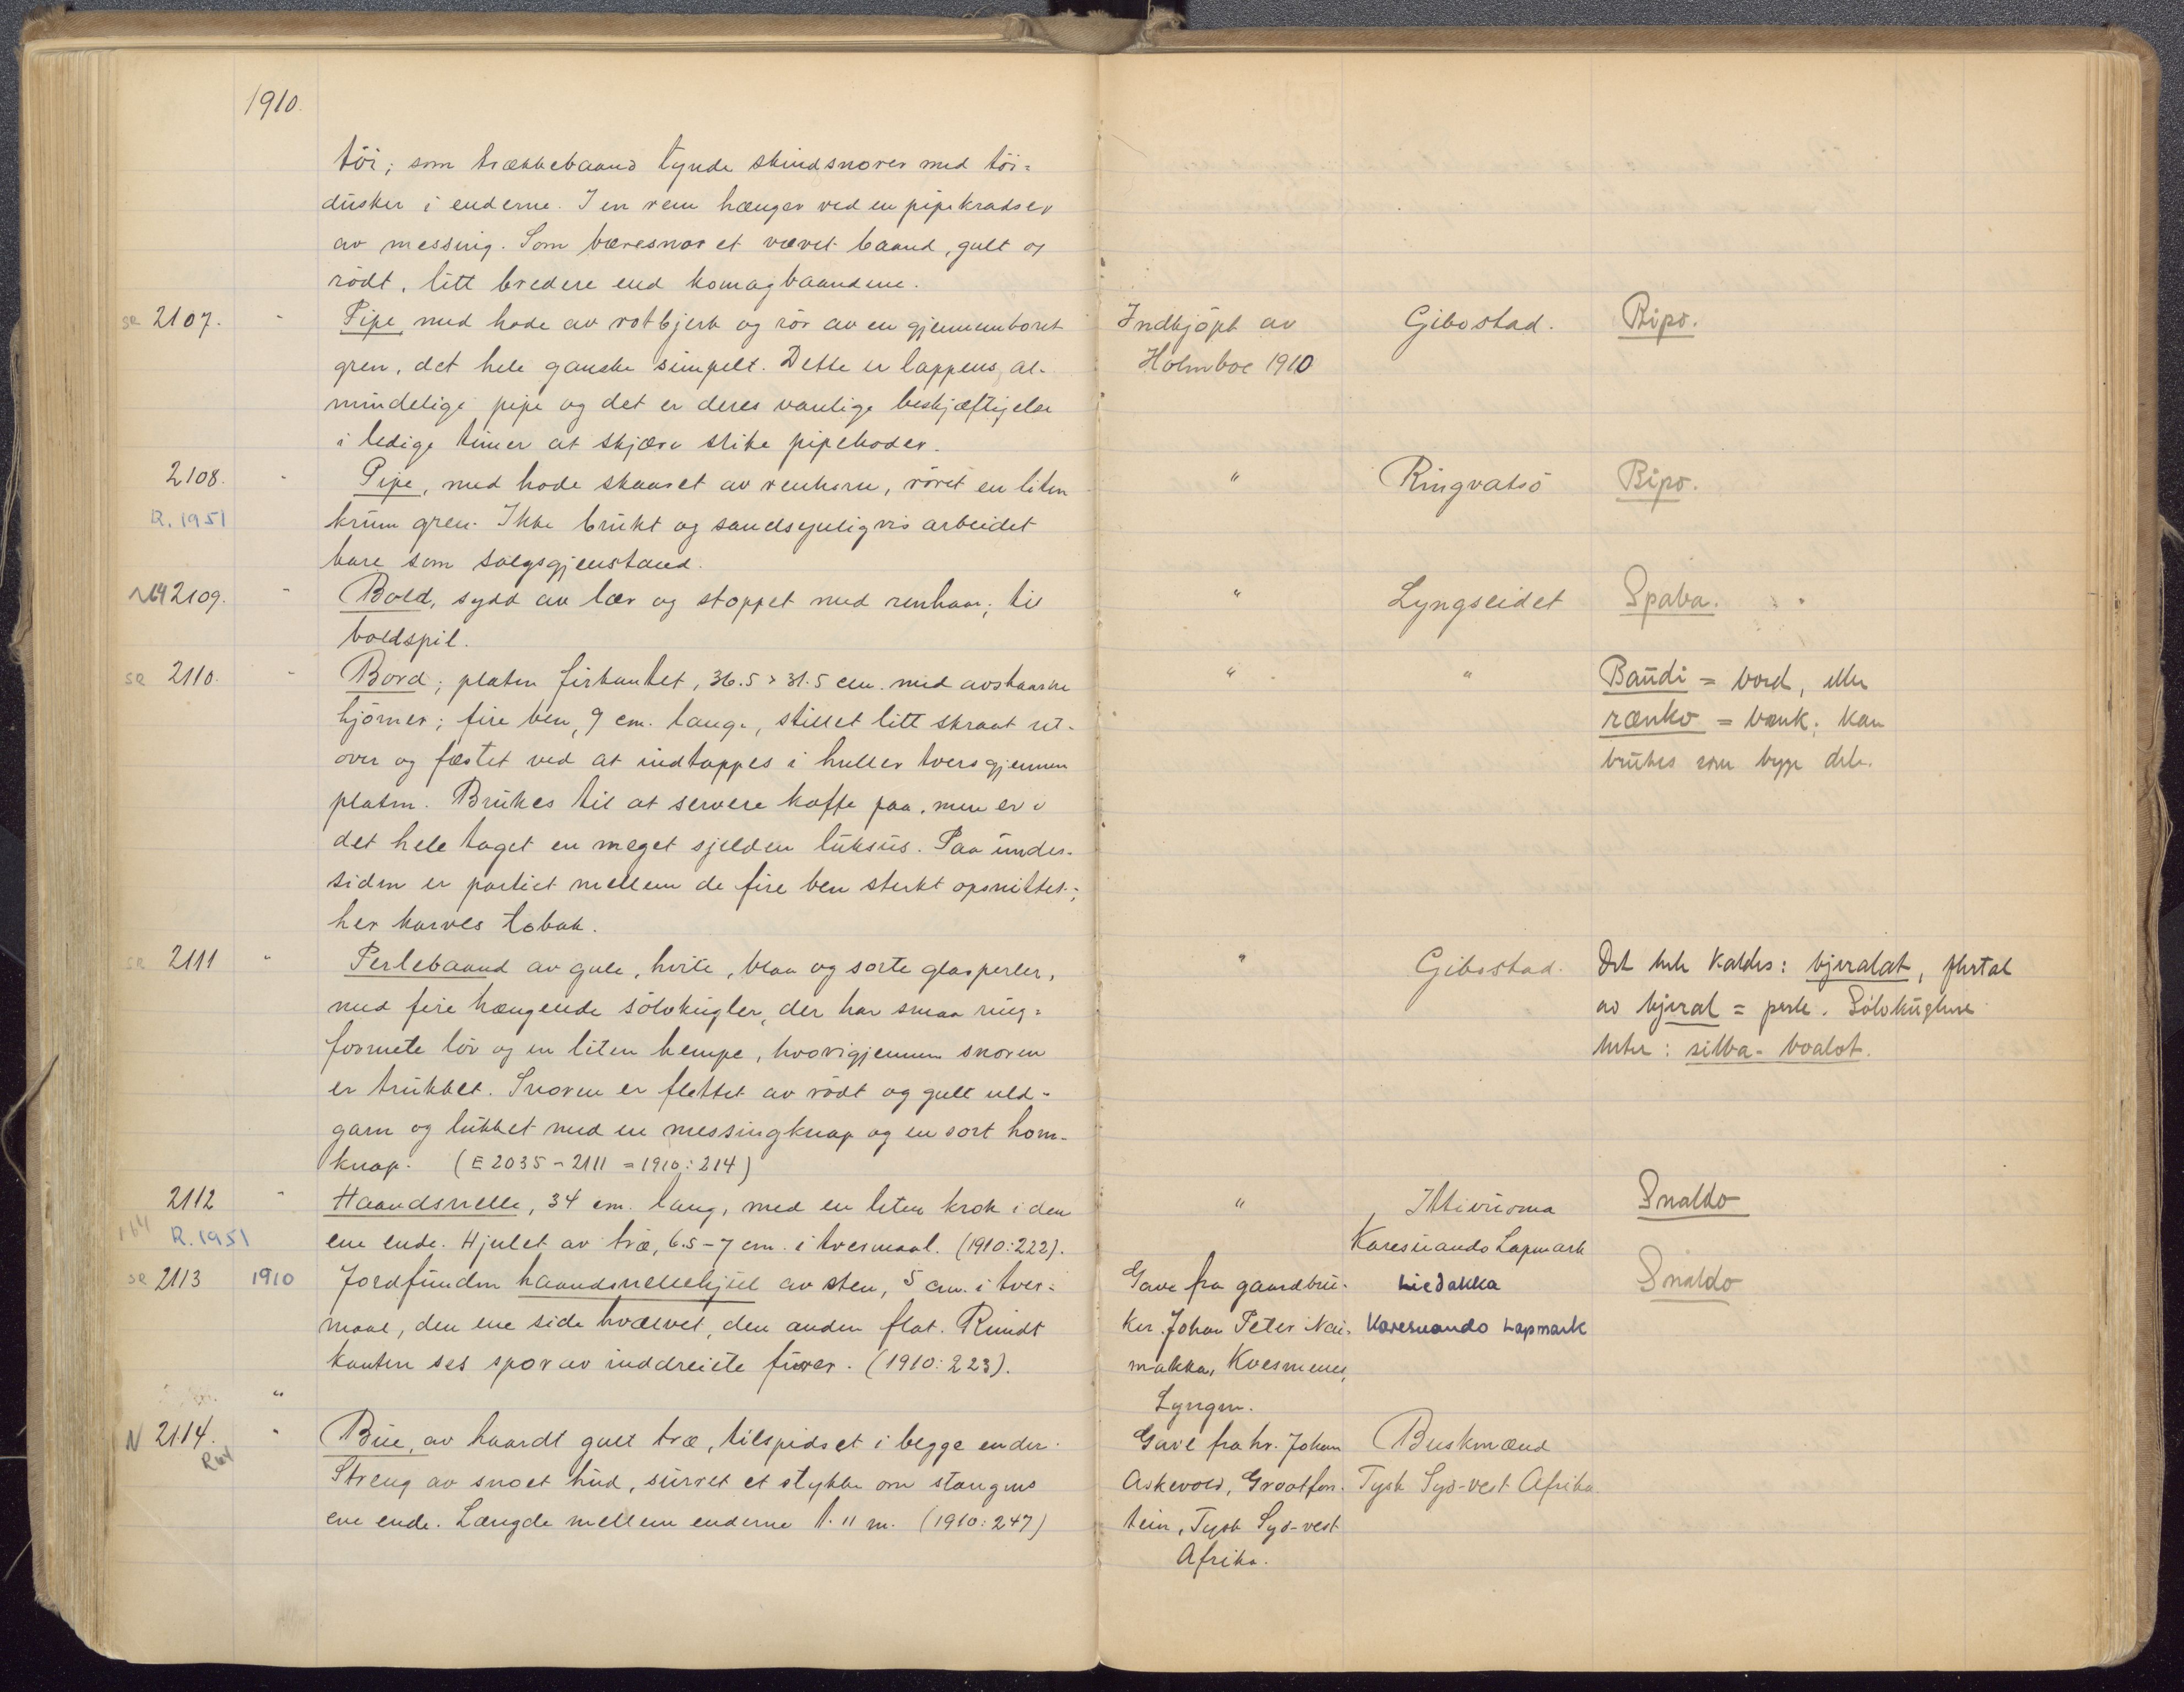 1910.
töi; som trækkebaand tynde skindsnorer med töi-
dusker i enderne. I en rem hænger ved en pipekradser
av messing. Som bæresnor et vævet baand, gult og
rödt, litt bredere end komagbaandene.
se 2107. " Pipe med hode av rotbjerk og rör av en gjennemboret Indkjöpt av Gibostad. Bipo.
gren, det hele ganske simpelt. Dette er lappens al- Holmboe 1910
mindelige pipe og det er deres vanlige beskjæftigelse
i ledige timer at skjære slike pipehoder.
2108. " Pipe, med hode skaaret av renhorn, röret en liten " Ringvatsö Bipo.
R. 1951 krum gren. Ikke brukt og sandsynligvis arbeidet
bare som salgsgjenstand.
2109. " Bold, sydd av lær og stoppet med renhaar; til " Lyngseidet Spaba.
boldspil.
se 2110. " Bord; platen firkantet, 36.5 × 31.5 cm. med avskaarne " " Baudi = bord, eller
hjörner; fire ben, 9 cm. lange, stillet litt skraat ut- rænko = bænk; kan
over og fæstet ved at indtappes i huller tvers gjennem brukes som begge dele.
platen. Brukes til at servere kaffe paa, men er i
det hele taget en meget sjelden luksus. Paa under-
siden er partiet mellem de fire ben sterkt opsnittet;
her karves tobak.
se 2111 " Perlebaand av gule, hvite, blaa og sorte glasperler, " Gibostad. Det hele kaldes: bjeralat, flertal
med fire hængende sölvkugler, der har smaa ring- av bjeral = perle. Sölvkuglene
formete löv og en liten hempe, hvorigjennem snoren heter: silba-boalot.
er trukket. Snoren er flettet av rödt og gult uld-
garn og lukket med en messingknap og en sort horn-
knap. (E 2035 - 2111 = 1910: 214)
2112 " Haandsnelle, 34 cm. lang, med en liten krok i den " Ittivuoma Snaldo
R. 1951 ene ende. Hjulet av træ, 6.5 - 7 cm. i tvermaal. (1910: 222). Karesuando Lapmark
se 2113 1910 Jordfunden haandsnellehjul av sten, 5 cm. i tver- Gave fra gaardbru- Liedakka Snaldo
maal, den ene side hvælvet, den anden flat. Rundt ker Johan Peter Nai- Karesuando Lapmark
kanten ses spor av inddreiete furer. (1910: 223). makka, Kvesmenes,
" Lyngen.
N 2114. " Bue, av haardt gult træ, tilspidset i begge ender. Gave fra hr. Johan Buskmænd
R64 Streng av snoet hud, surret et stykke om stangens Askevold, Grootfon- Tysk Syd-vest Afrika.
ene ende. Længde mellem enderne 1.11 m. (1910: 247) tein, Tysk Syd-vest
Afrika.